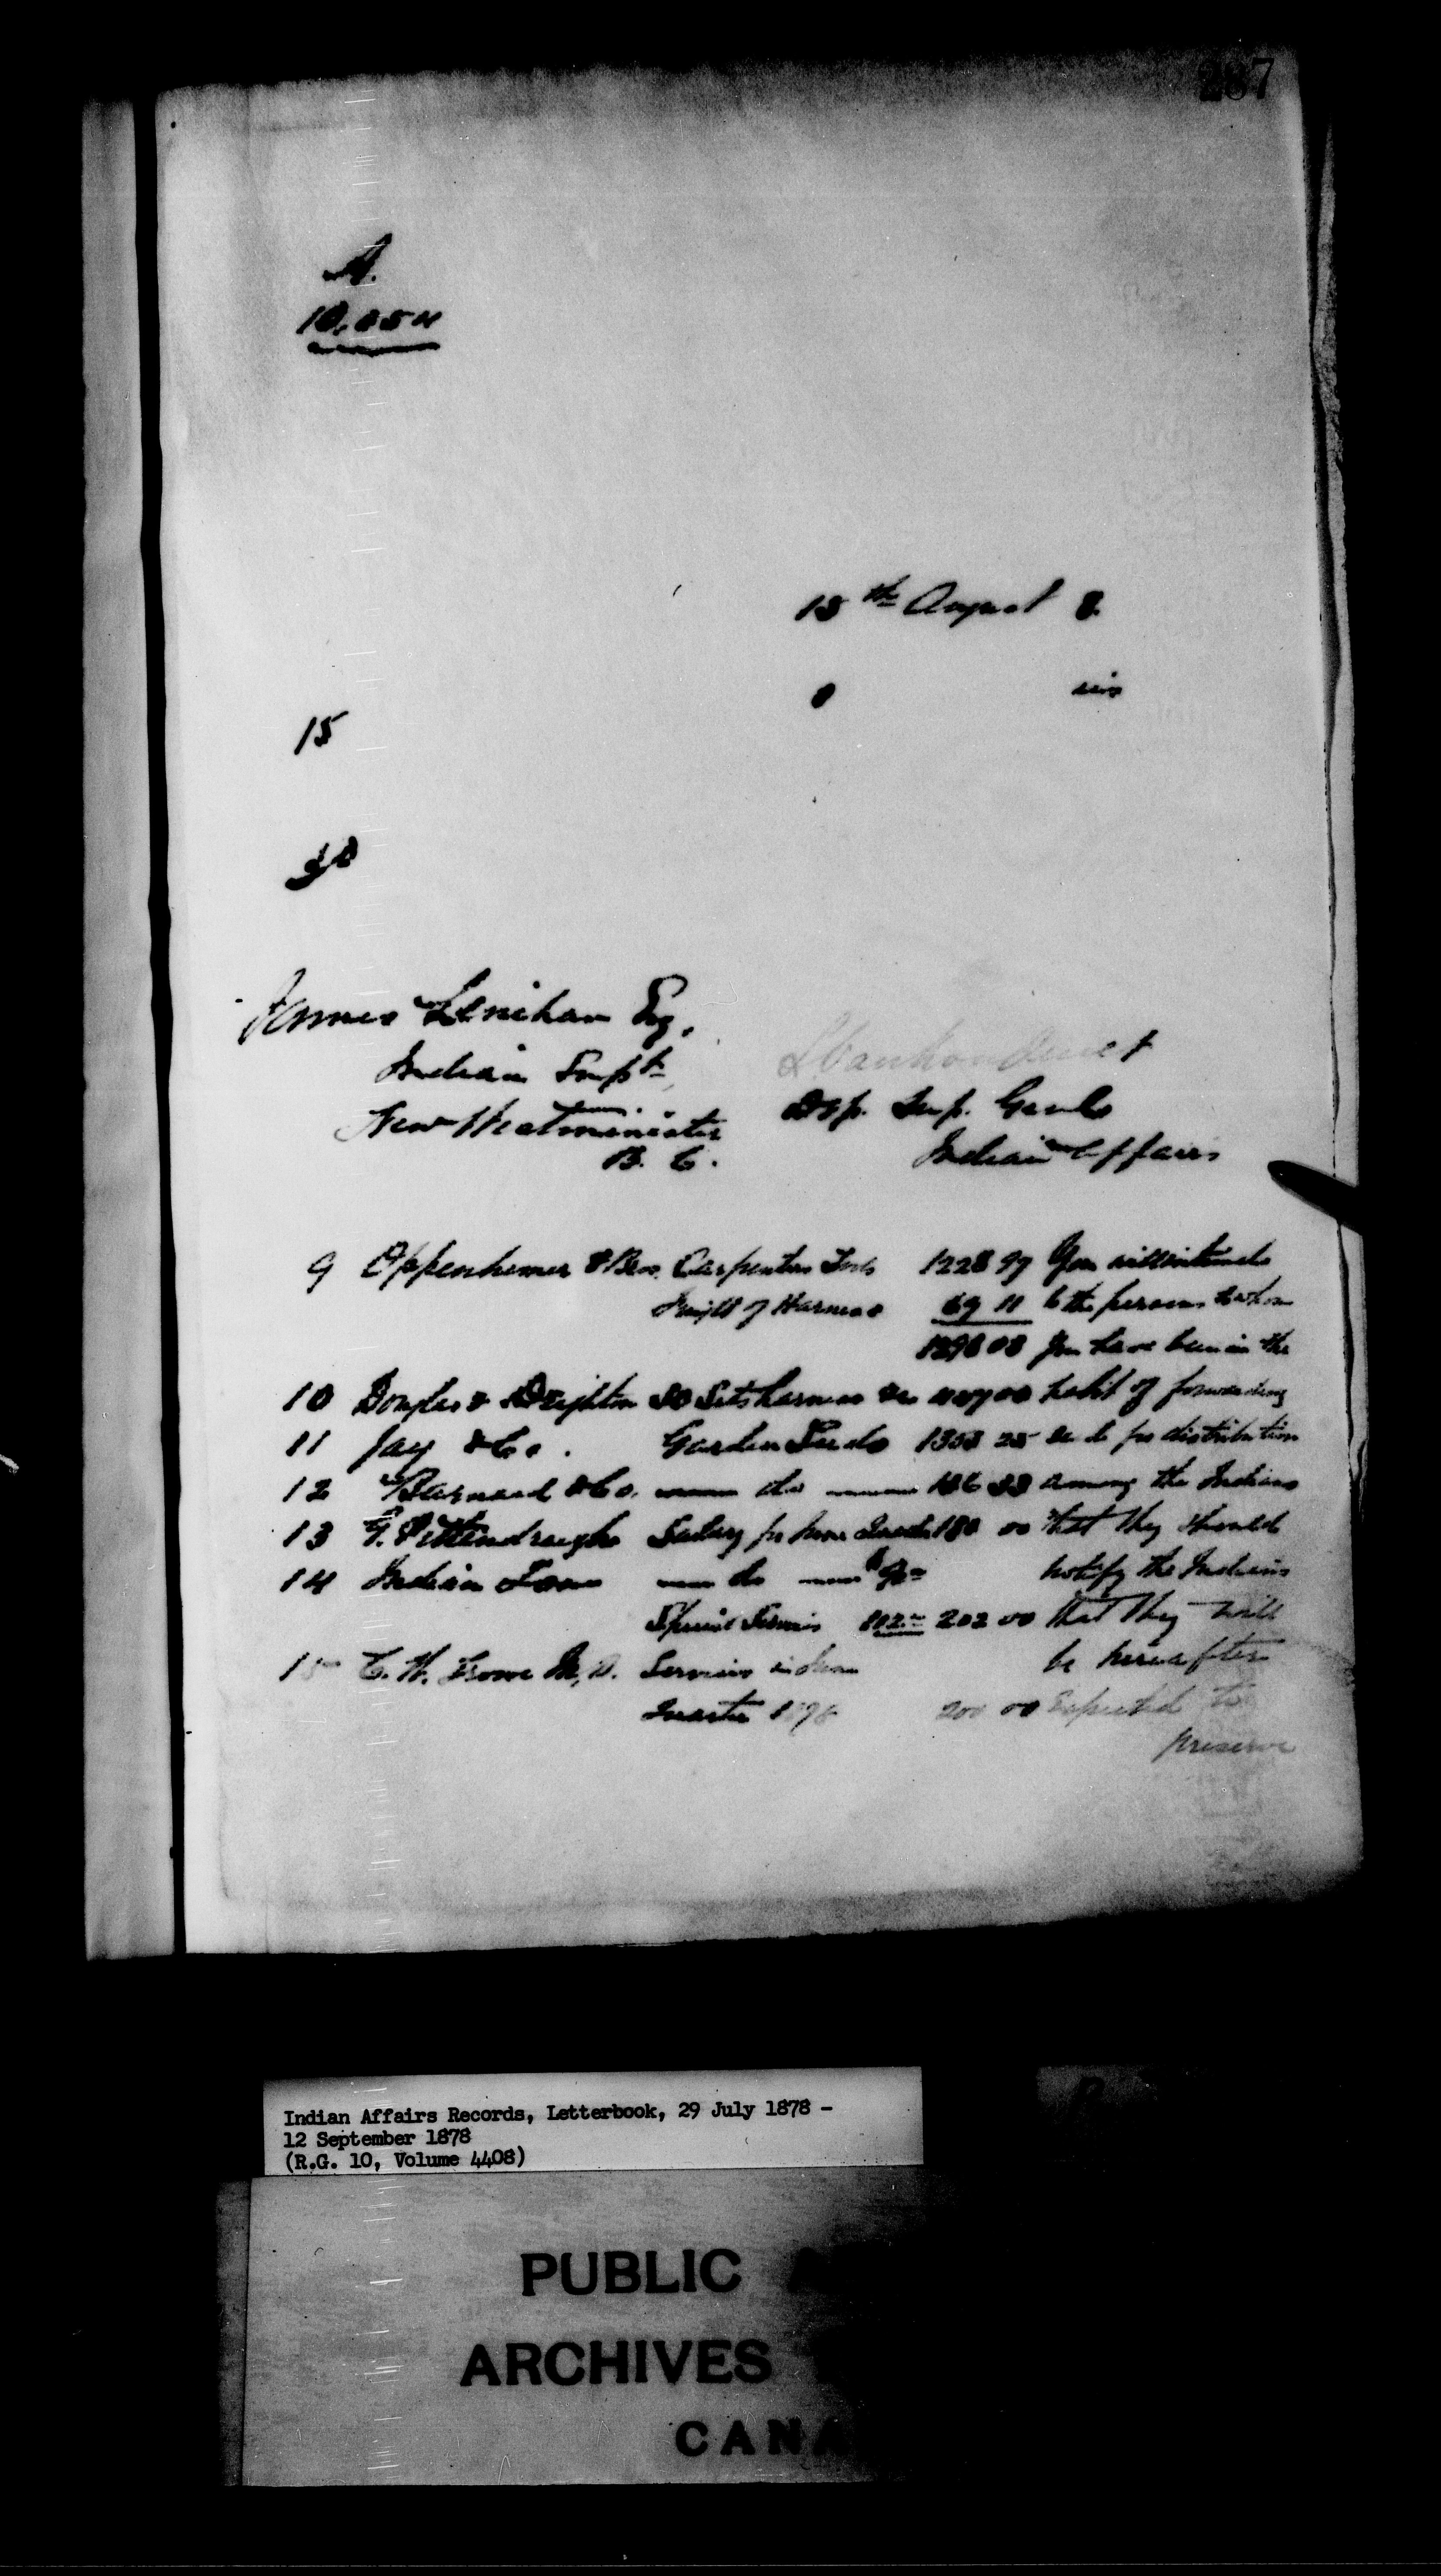 287
A.
10,054
15th August 8.
8 six
15
James Lenihan Esq.
Indian Supt
New Westminster
B. C.
LVankoughnet
Dep. Sup. Genl
Indian Affairs
9 Oppenhemer & Bros. Carpenters Tools 1228 97 You will intimate
Freight of Harness 69 11 to the persons to whom
1298 08 you have been in the
10 Douglas & Deighton Sets harness habit of forwarding
11 Jay & Co. Garden Seeds 1353 25 seeds for distribution
12 Barnard & Co. do 186 33 among the Indians
13 Salary for June Quarter 180 00 that they should
14 Indian do notify the Indians
Special Services 202 00 that they will
15 C. N. Trowe M.D. Services in June be hereafter
Quarter 1878 200 00 expected to
preserve
Indian Affairs Records, Letterbook, 29 July 1878 -
12 September 1878
(R.G. 10, Volume 4408)
PUBLIC A
ARCHIVES
CANA